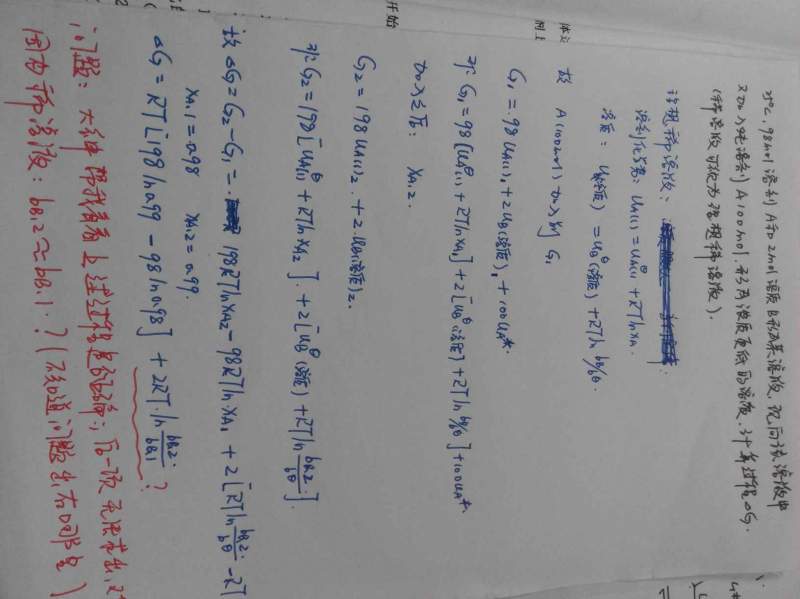 25℃, 98mol 溶剂 A 和 2mol 溶质 B 形成某溶液, 现向该溶液中
又加入纯溶剂 A 100mol. 形成浓度更低的溶液. 计算过程△G.
(稀溶液可视为理想稀溶液).
理想稀溶液:
溶剂化学势: u_A(l) = u^θ_A(l) + RTlnx_A.
溶质: u(溶质) = u^θ_B(溶质) + RTln b_B/b^θ.
故 A(100mol) 加入时 G₁
G₁ = 98 u_A(l),₁ + 2 u_B(溶质),₁ + 100u_A*.
即: G₁ = 98[u^θ_A(l) + RTlnx_A,₁] + 2[u^θ_B(溶质) + RTln b_B/b^θ] + 100u_A*.
加入之后: x_A,₂.
G₂ = 198 u_A(l),₂ + 2·u_B(溶质)₂.
即: G₂ = 198[u^θ_A(l) + RTlnx_A₂] + 2[u^θ_B(溶质) + RTln b_B,₂/b^θ].
故 △G = G₂ - G₁ = 198RTlnx_A₂ - 98RTlnx_A₁ + 2[RTln b_B,₂/b^θ - RT
x_A,₁ = 0.98 x_A,₂ = 0.99.
△G = RT[198ln0.99 - 98ln0.98] + 2RT·ln b_B,₂/b_B,₁ ?
问题: 大神帮我看看上述过程是否正确; 后一项无法求出, 对
因为稀溶液: b_B,₂ ≈ b_B,₁. ? (不知道问题出在哪里)
开始